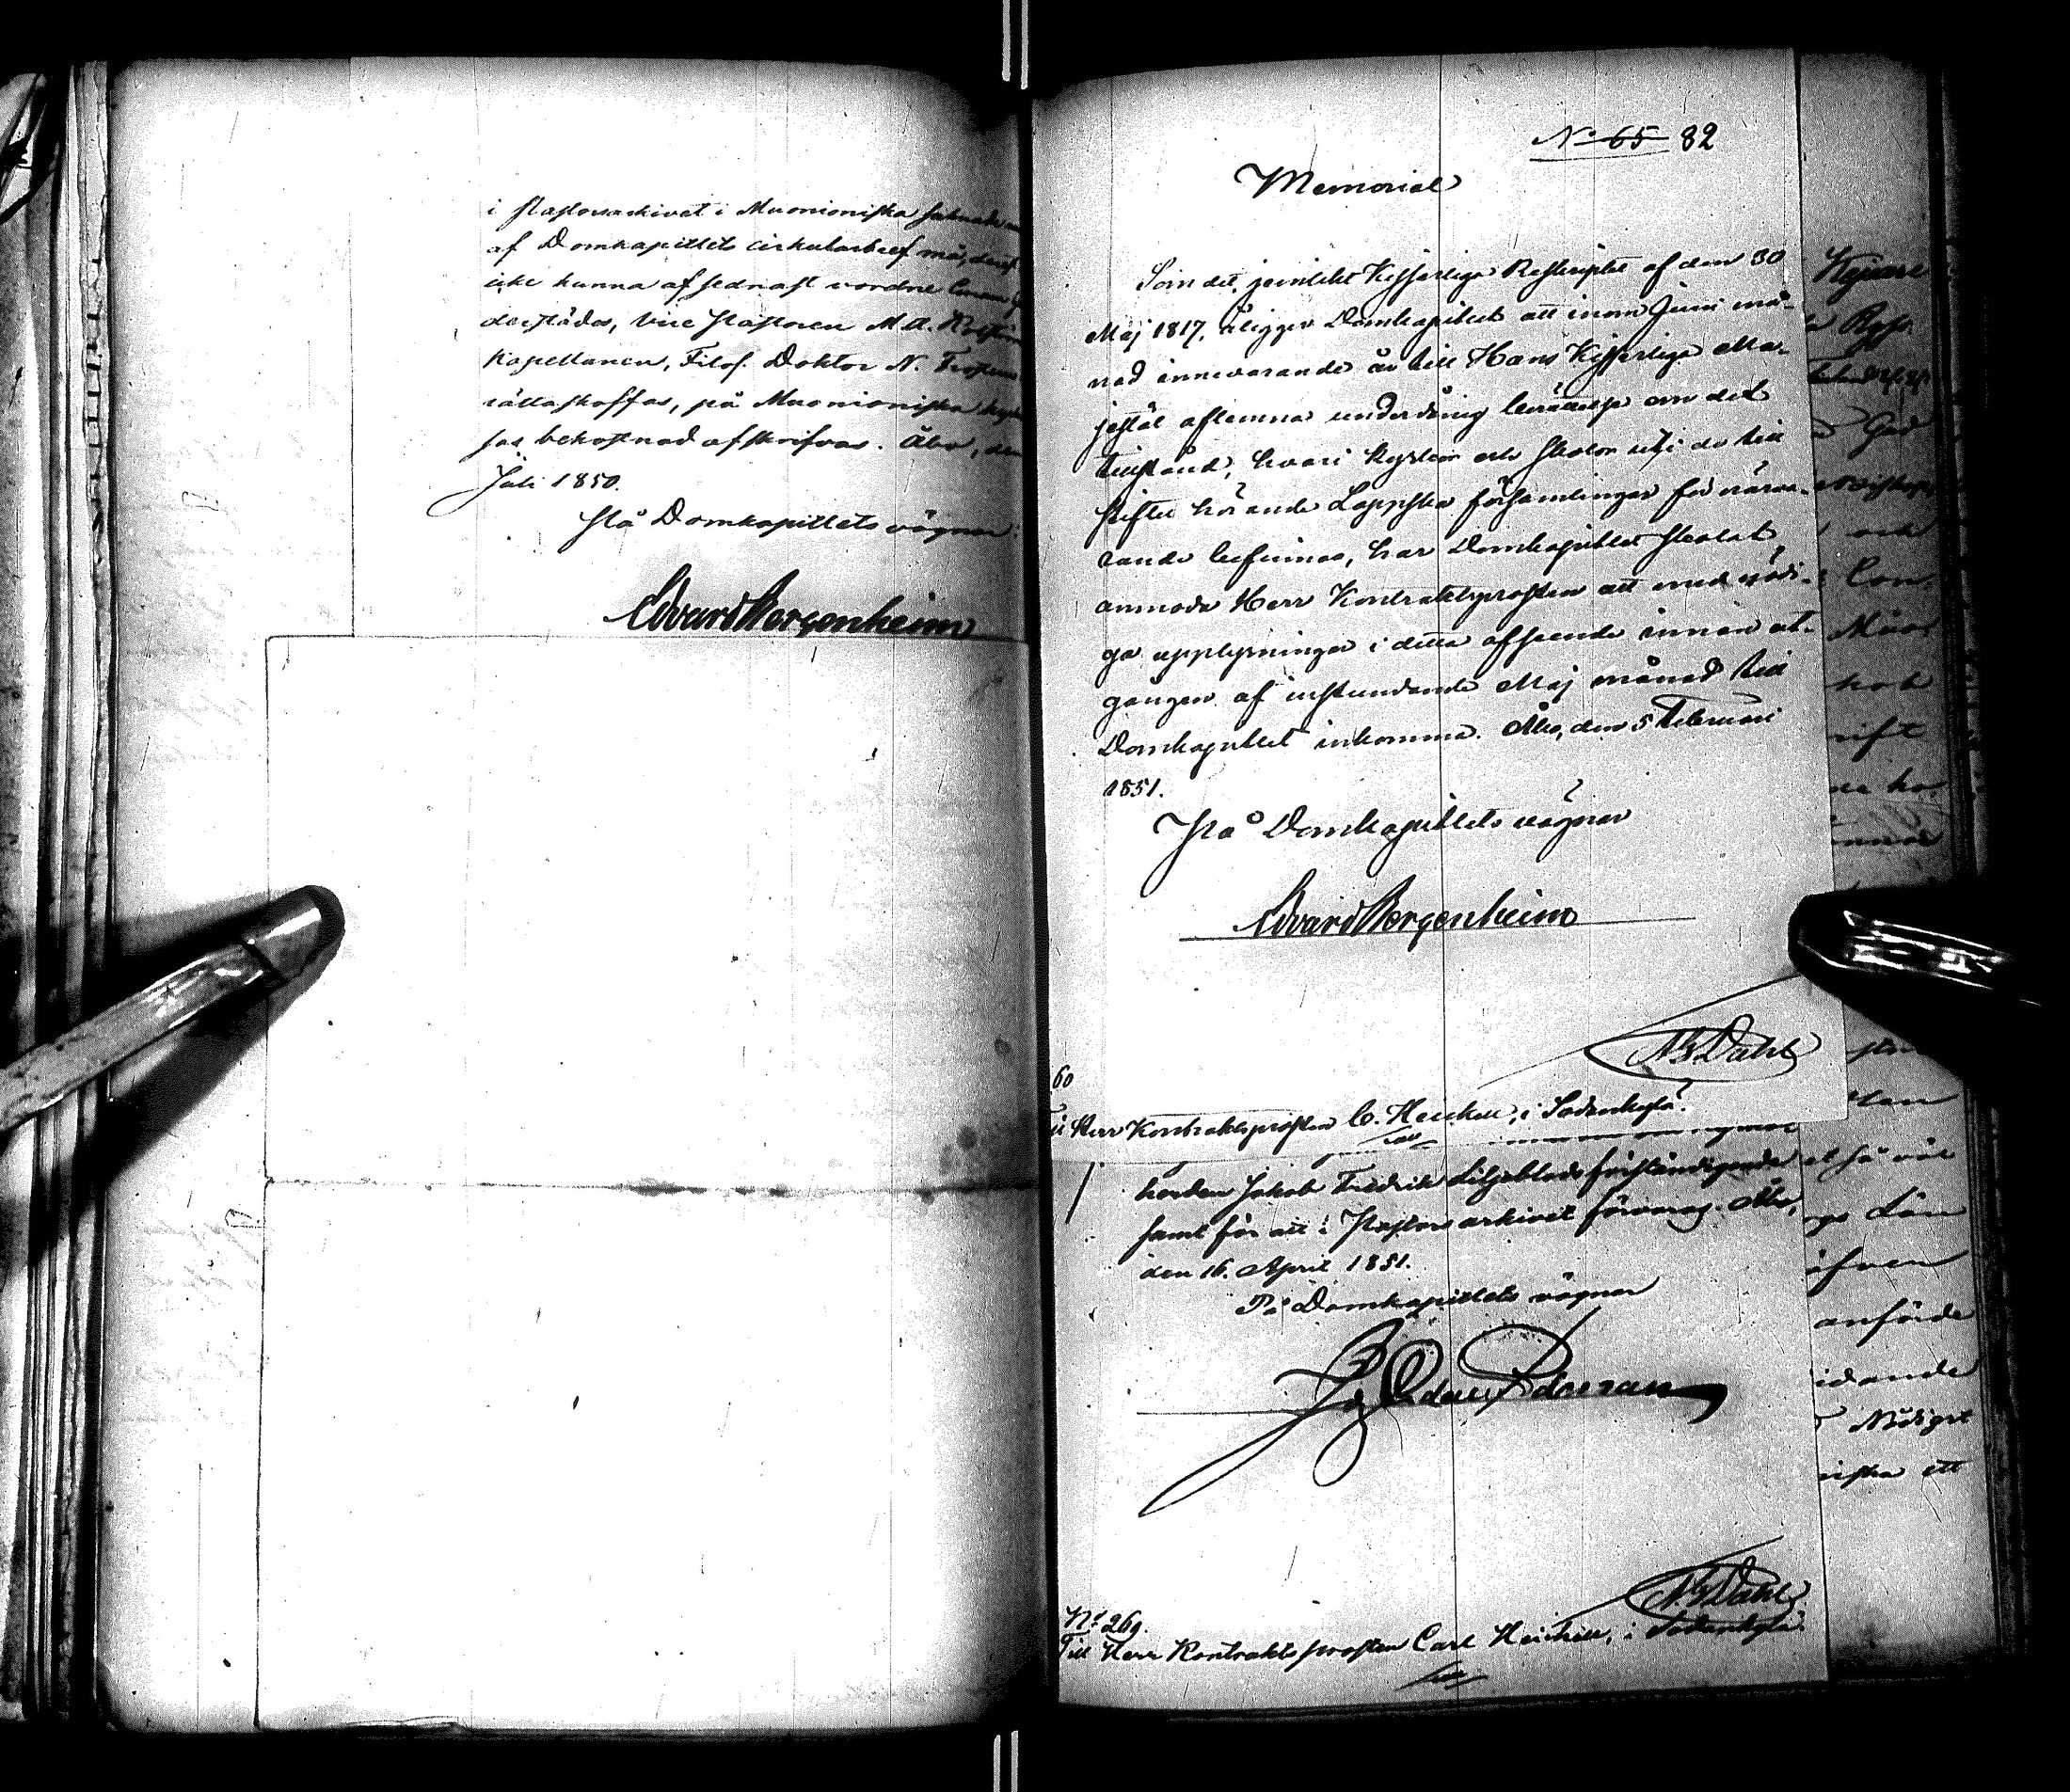 i Pastorsarkivet i Muonioniska saknade
af Domkapitlets cirkulärbref må, derest
icke kunna af sednast vordne
derstädes, vice Pastoren M. M.
Kapellanen, Filos. Doktor N.
rättaskaffas, på Muonioniska
sas bekostnad afskrifvas. Åbo, den
Juli 1850.
På Domkapitlets vägnar:
Edvard Bergenheim
No 65 82
Memorial
Som det, jemlikt Kejserliga Reskriptet af den 30
Maj 1817, åligger Domkapitlet att inom Juni må-
nad innevarande år till Hans Kejserliga Ma-
jestät aflemna underdånig berättelse om det
tillstånd, hvari kyrkor och skolor uti de till
stiftet hörande Lappska församlingar för närva-
rande befinnas, har Domkapitlet skolat
anmoda Herr Kontraktsprosten att med nödi-
ga upplysningar i detta afseende innan ut-
gången af instundande Maj månad till
Domkapitlet inkomma. Åbo, den 5 Februari
1851.
På Domkapitlets vägnar
Edvard Bergenheim
Dahl
60
Herr Kontraktsprosten C. Heickell, i Sodankylä.
Jakob Fredrik Liljeblads friständigande
samt för att i Pastorsarkivet förvaras. Åbo,
den 16. April 1851.
På Domkapitlets vägnar
Dahl
No 269.
Till Herr Kontraktsprosten Carl Heickell, i Sodankylä.
Kejsare
Gud
och
Con-
rift
Län
äfven
anförde
Nådigst
ett